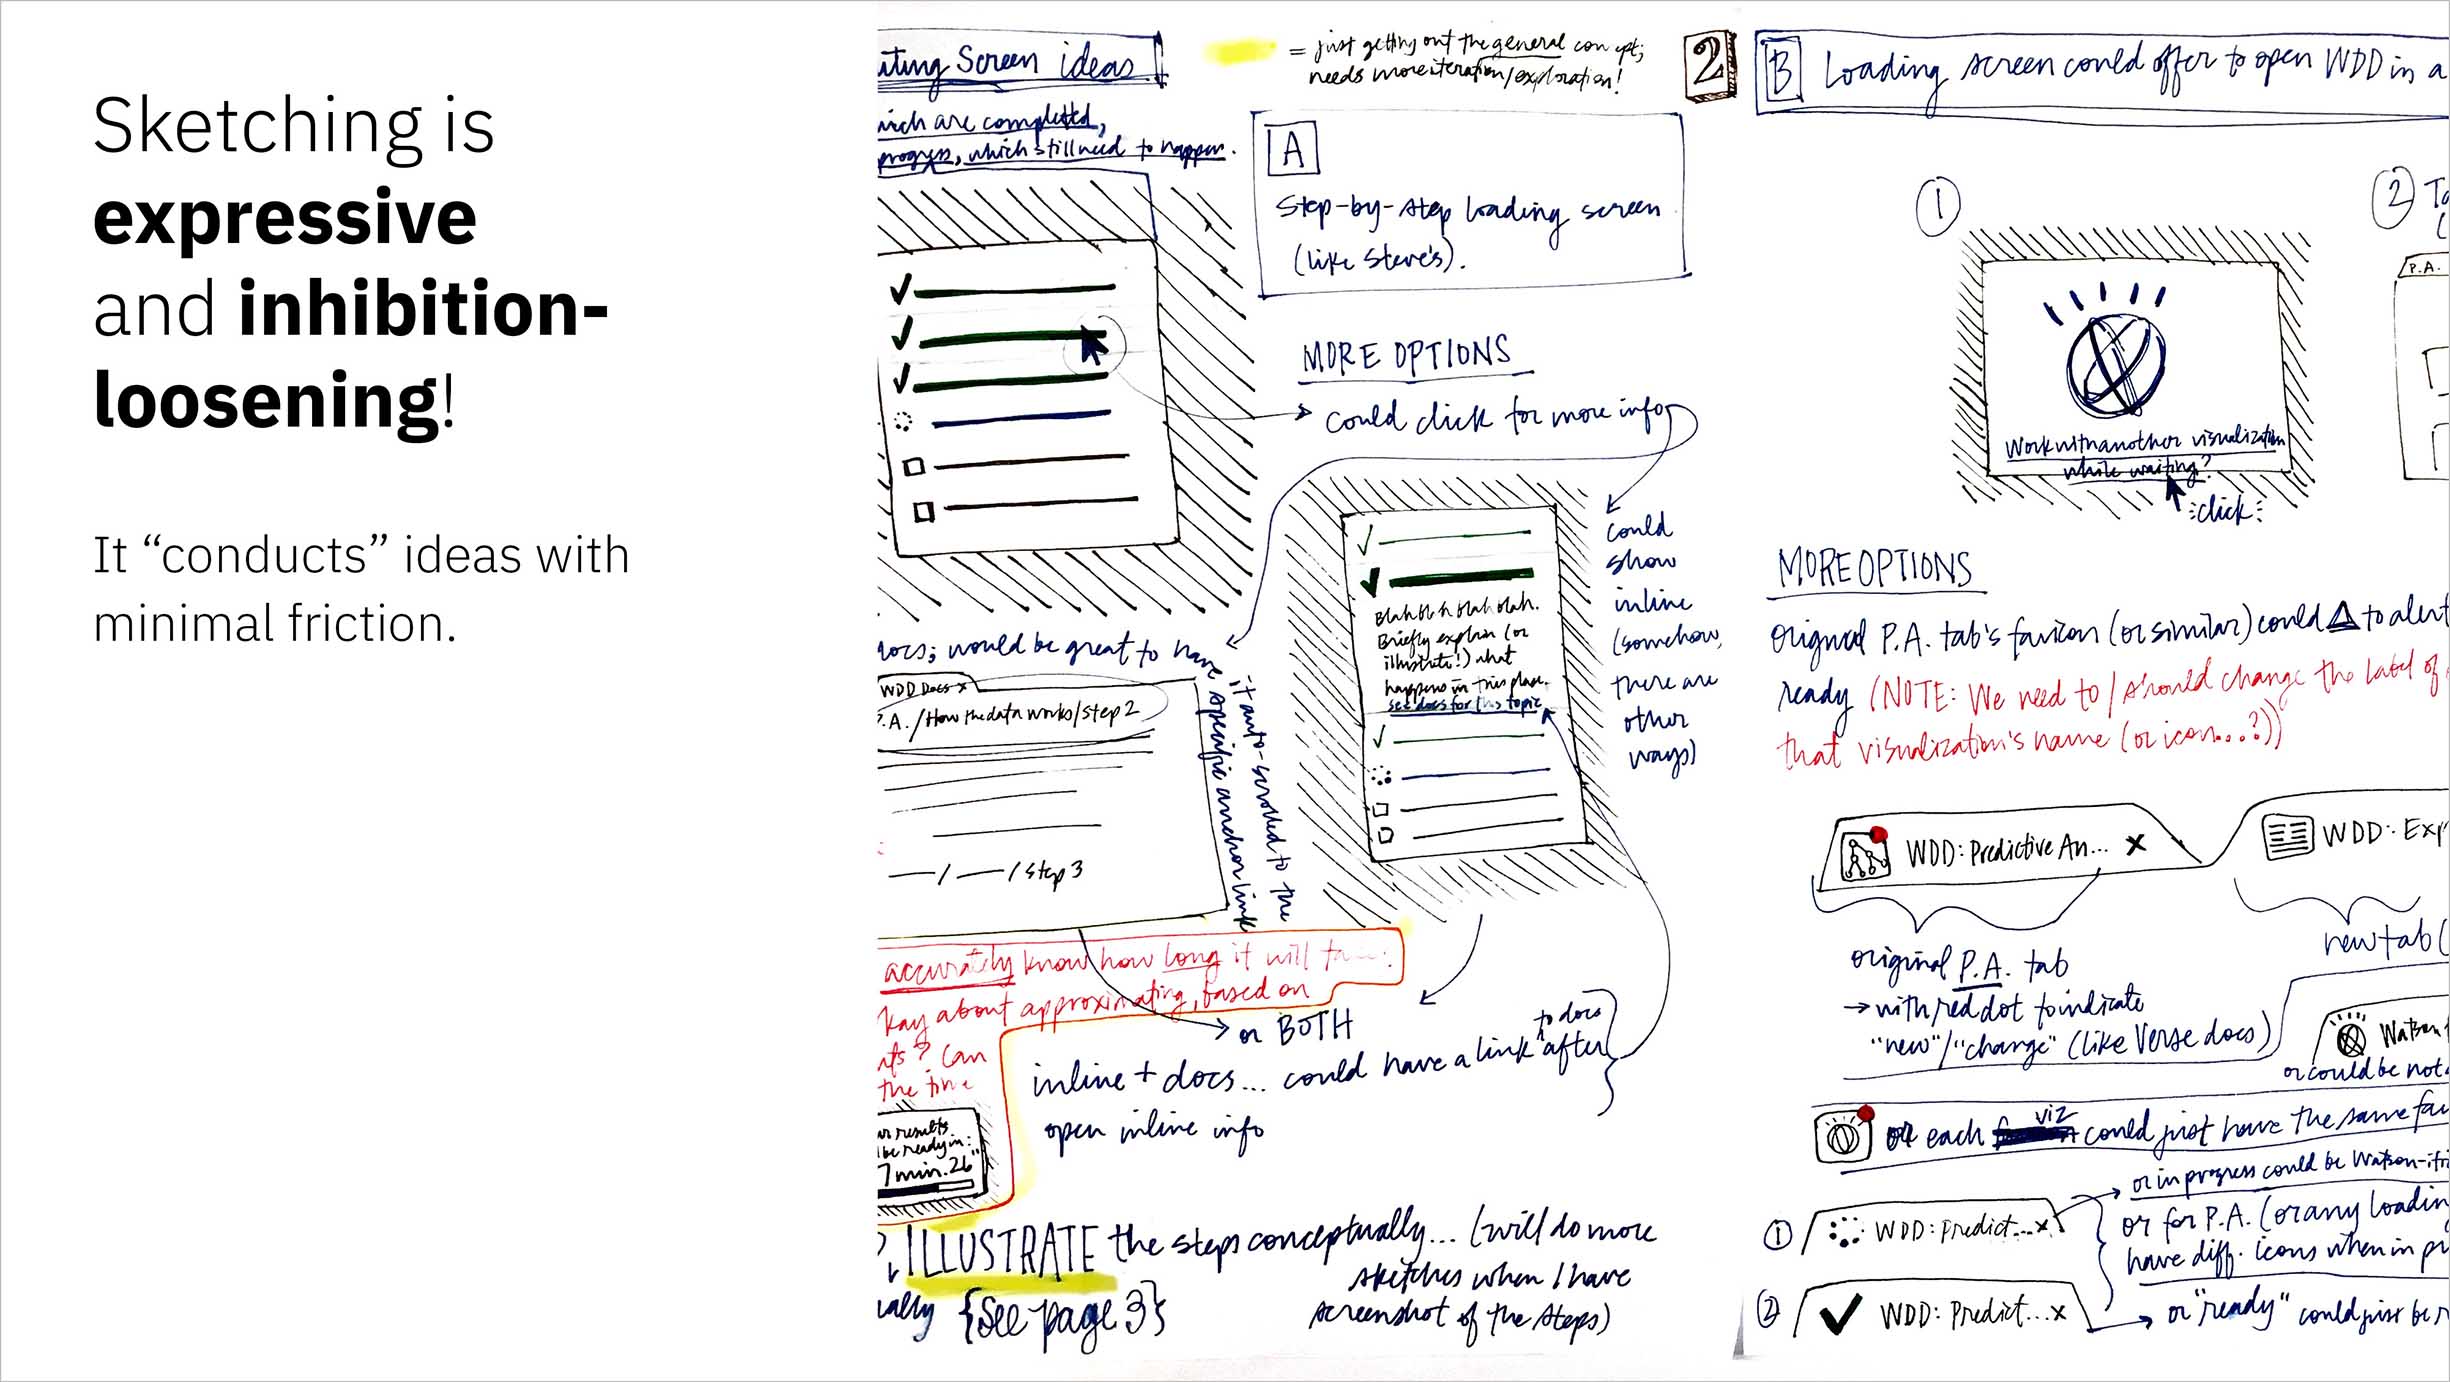 Sketching is
expressive
and inhibition-
loosening!
It “conducts” ideas with
minimal friction.
Screen ideas
= just getting out the general concept;
needs more iteration/exploration!
are completed,
progress, which still need to happen.
A
Step-by-step loading screen
(like Steve's).
MORE OPTIONS
could click for more info
could
show
inline
(somehow,
there are
other
ways)
Blah blah blah blah.
Briefly explain (or
illustrate!) what
happens in this place.
see docs for this topic
docs; would be great to have specific anchor link
it auto-scrolled to the
WDD Docs x
P.A./How the data works/step 2
/ /step 3
accurately know how long it will
about approximating, based on
? Can
the time
results
be ready in:
7 min. 26"
or BOTH
inline + docs... could have a link to docs after
open inline info
ILLUSTRATE the steps conceptually... (will do more
sketches when I have
screenshot of the steps)
{See page 3}
2
B Loading screen could offer to open WDD in a
1
2
P.A.
Work with another visualization
while waiting?
click
MORE OPTIONS
original P.A. tab's favicon (or similar) could △ to alert
ready (NOTE: We need to/should change the label of
that visualization's name (or icon...?))
WDD: Predictive An... x
WDD: Exp
original P.A. tab
→ with red dot to indicate
"new"/"change" (like Verse docs)
new tab (
Watson
or could be not
or each viz could just have the same fav
or in progress could be Watson-
1 WDD: Predict...x
or for P.A. (or any loadin
have diff. icons when in pr
2 WDD: Predict...x
or "ready" could just be